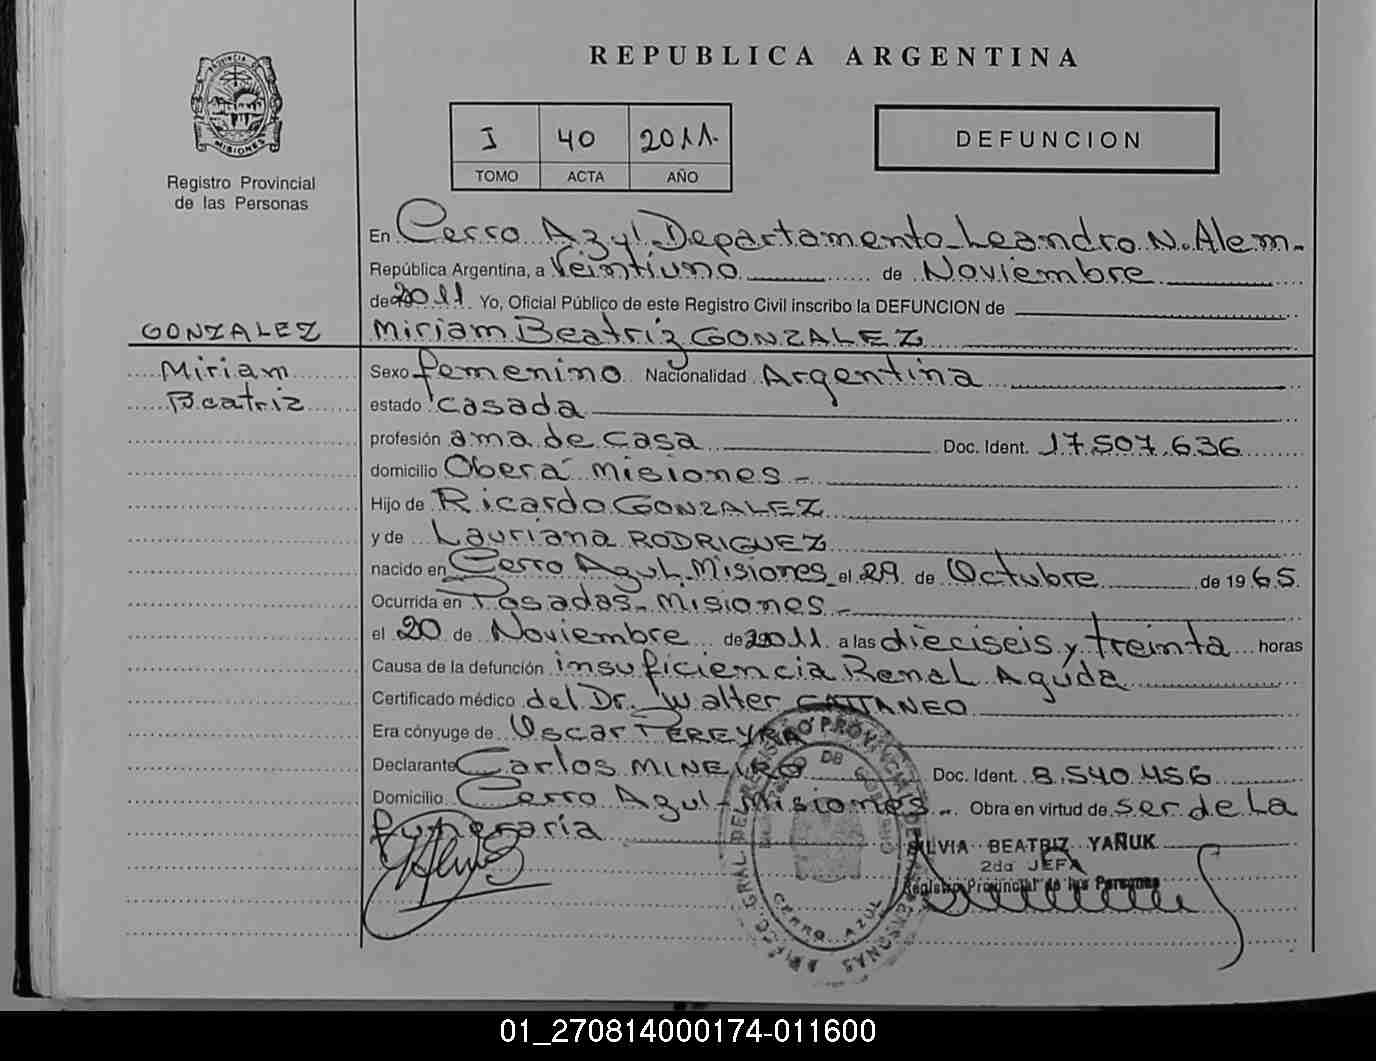 REPUBLICA ARGENTINA
PROVINCIA D MISIONES
Registro Provincial
de las Personas
I 40 2011.
TOMO ACTA AÑO
DEFUNCION
En Cerro Azul Departamento Leandro N. Alem.
República Argentina, a Veintiuno de Noviembre
de 2011 Yo, Oficial Público de este Registro Civil inscribo la DEFUNCION de
GONZALEZ Miriam Beatriz GONZALEZ
Miriam Sexo femenino Nacionalidad Argentina
Beatriz estado casada
profesión ama de casa Doc. Ident. 17.507.636
domicilio Oberá Misiones -
Hijo de Ricardo GONZALEZ
y de Lauriana RODRIGUEZ
nacido en Cerro Azul. Misiones el 29 de Octubre de 1965.
Ocurrida en Posadas - Misiones -
el 20 de Noviembre de 2011 a las dieciseis y treinta horas
Causa de la defunción insuficiencia Renal Aguda
Certificado médico del Dr. Walter CATTANEO
Era cónyuge de Oscar PEREYRA
Declarante Carlos MINEIRO Doc. Ident. 8.540.456
Domicilio Cerro Azul - Misiones -. Obra en virtud de ser de la
funeraria
SILVIA BEATRIZ YAÑUK
2da JEFA
Registro Provincial de las Personas
CERRO AZUL
01_270814000174-011600